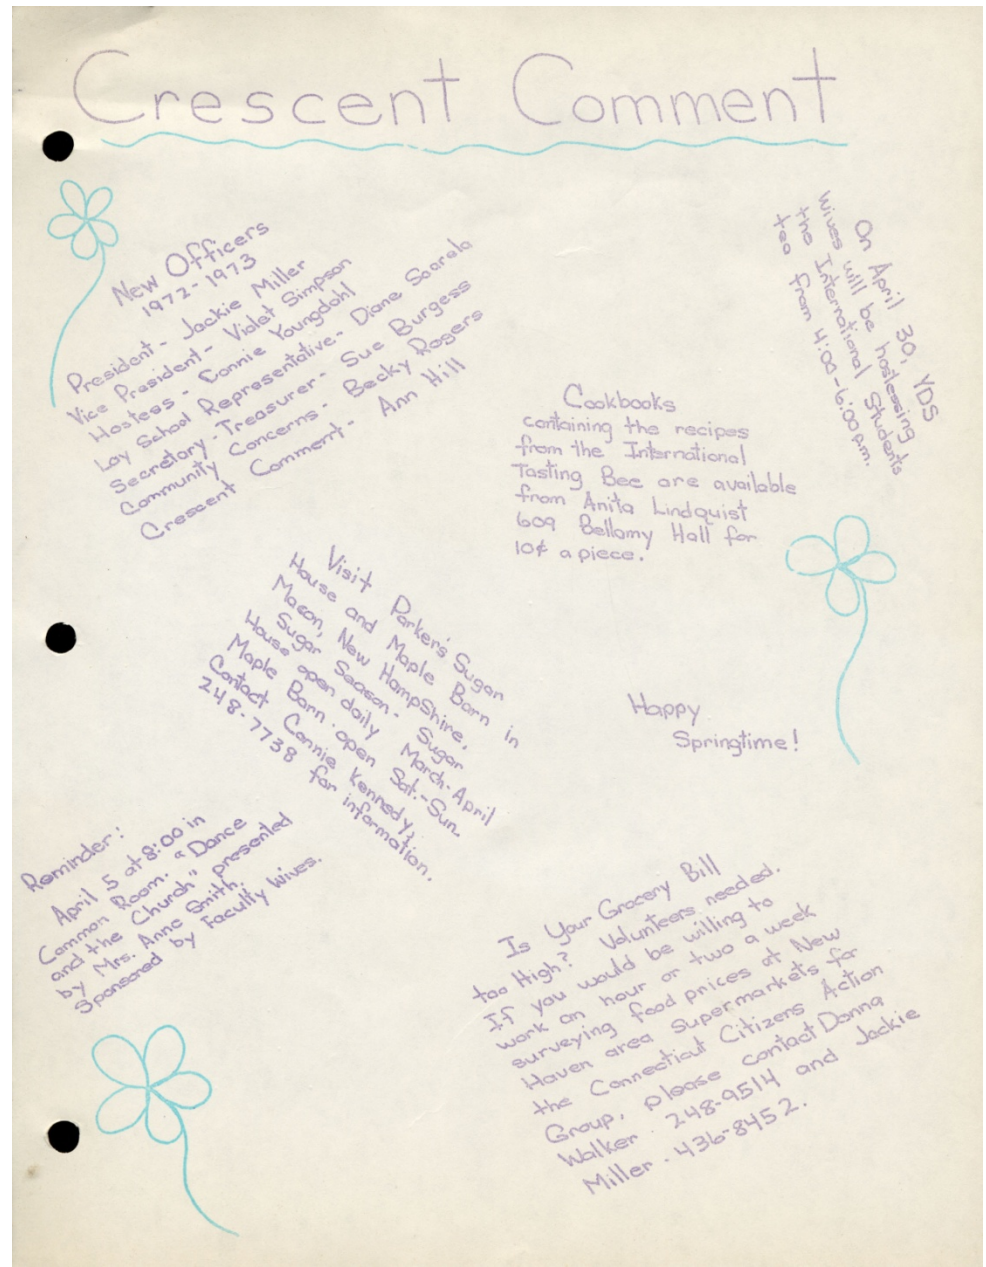 Crescent Comment
New Officers
1972-1973
President - Jackie Miller
Vice President - Violet Simpson
Hostess - Connie Youngdohl
Lay School Representative - Diane Saarela
Secretary - Treasurer - Sue Burgess
Community Concerns - Becky Rogers
Crescent Comment - Ann Hill
On April 30, YDS
Wives will be hostessing
the International Students
tea from 4:00-6:00 p.m.
Cookbooks
containing the recipes
from the International
Tasting Bee are available
from Anita Lindquist
609 Bellamy Hall for
10¢ a piece.
Visit Parker's Sugar
House and Maple Barn in
Mason, New HampShire.
Sugar Season - Sugar
House open daily March-April
Maple Barn - open Sat.-Sun.
Contact Connie Kennedy,
248-7738 for information.
Happy
Springtime!
Reminder:
April 5 at 8:00 in
Common Room. "Dance
and the Church" presented
by Mrs. Anne Smith.
Sponsored by Faculty Wives.
Is Your Grocery Bill
too High? Volunteers needed.
If you would be willing to
work an hour or two a week
surveying food prices at New
Haven area supermarkets for
the Connecticut Citizens Action
Group, please contact Donna
Walker - 248-9514 and Jackie
Miller - 436-8452.